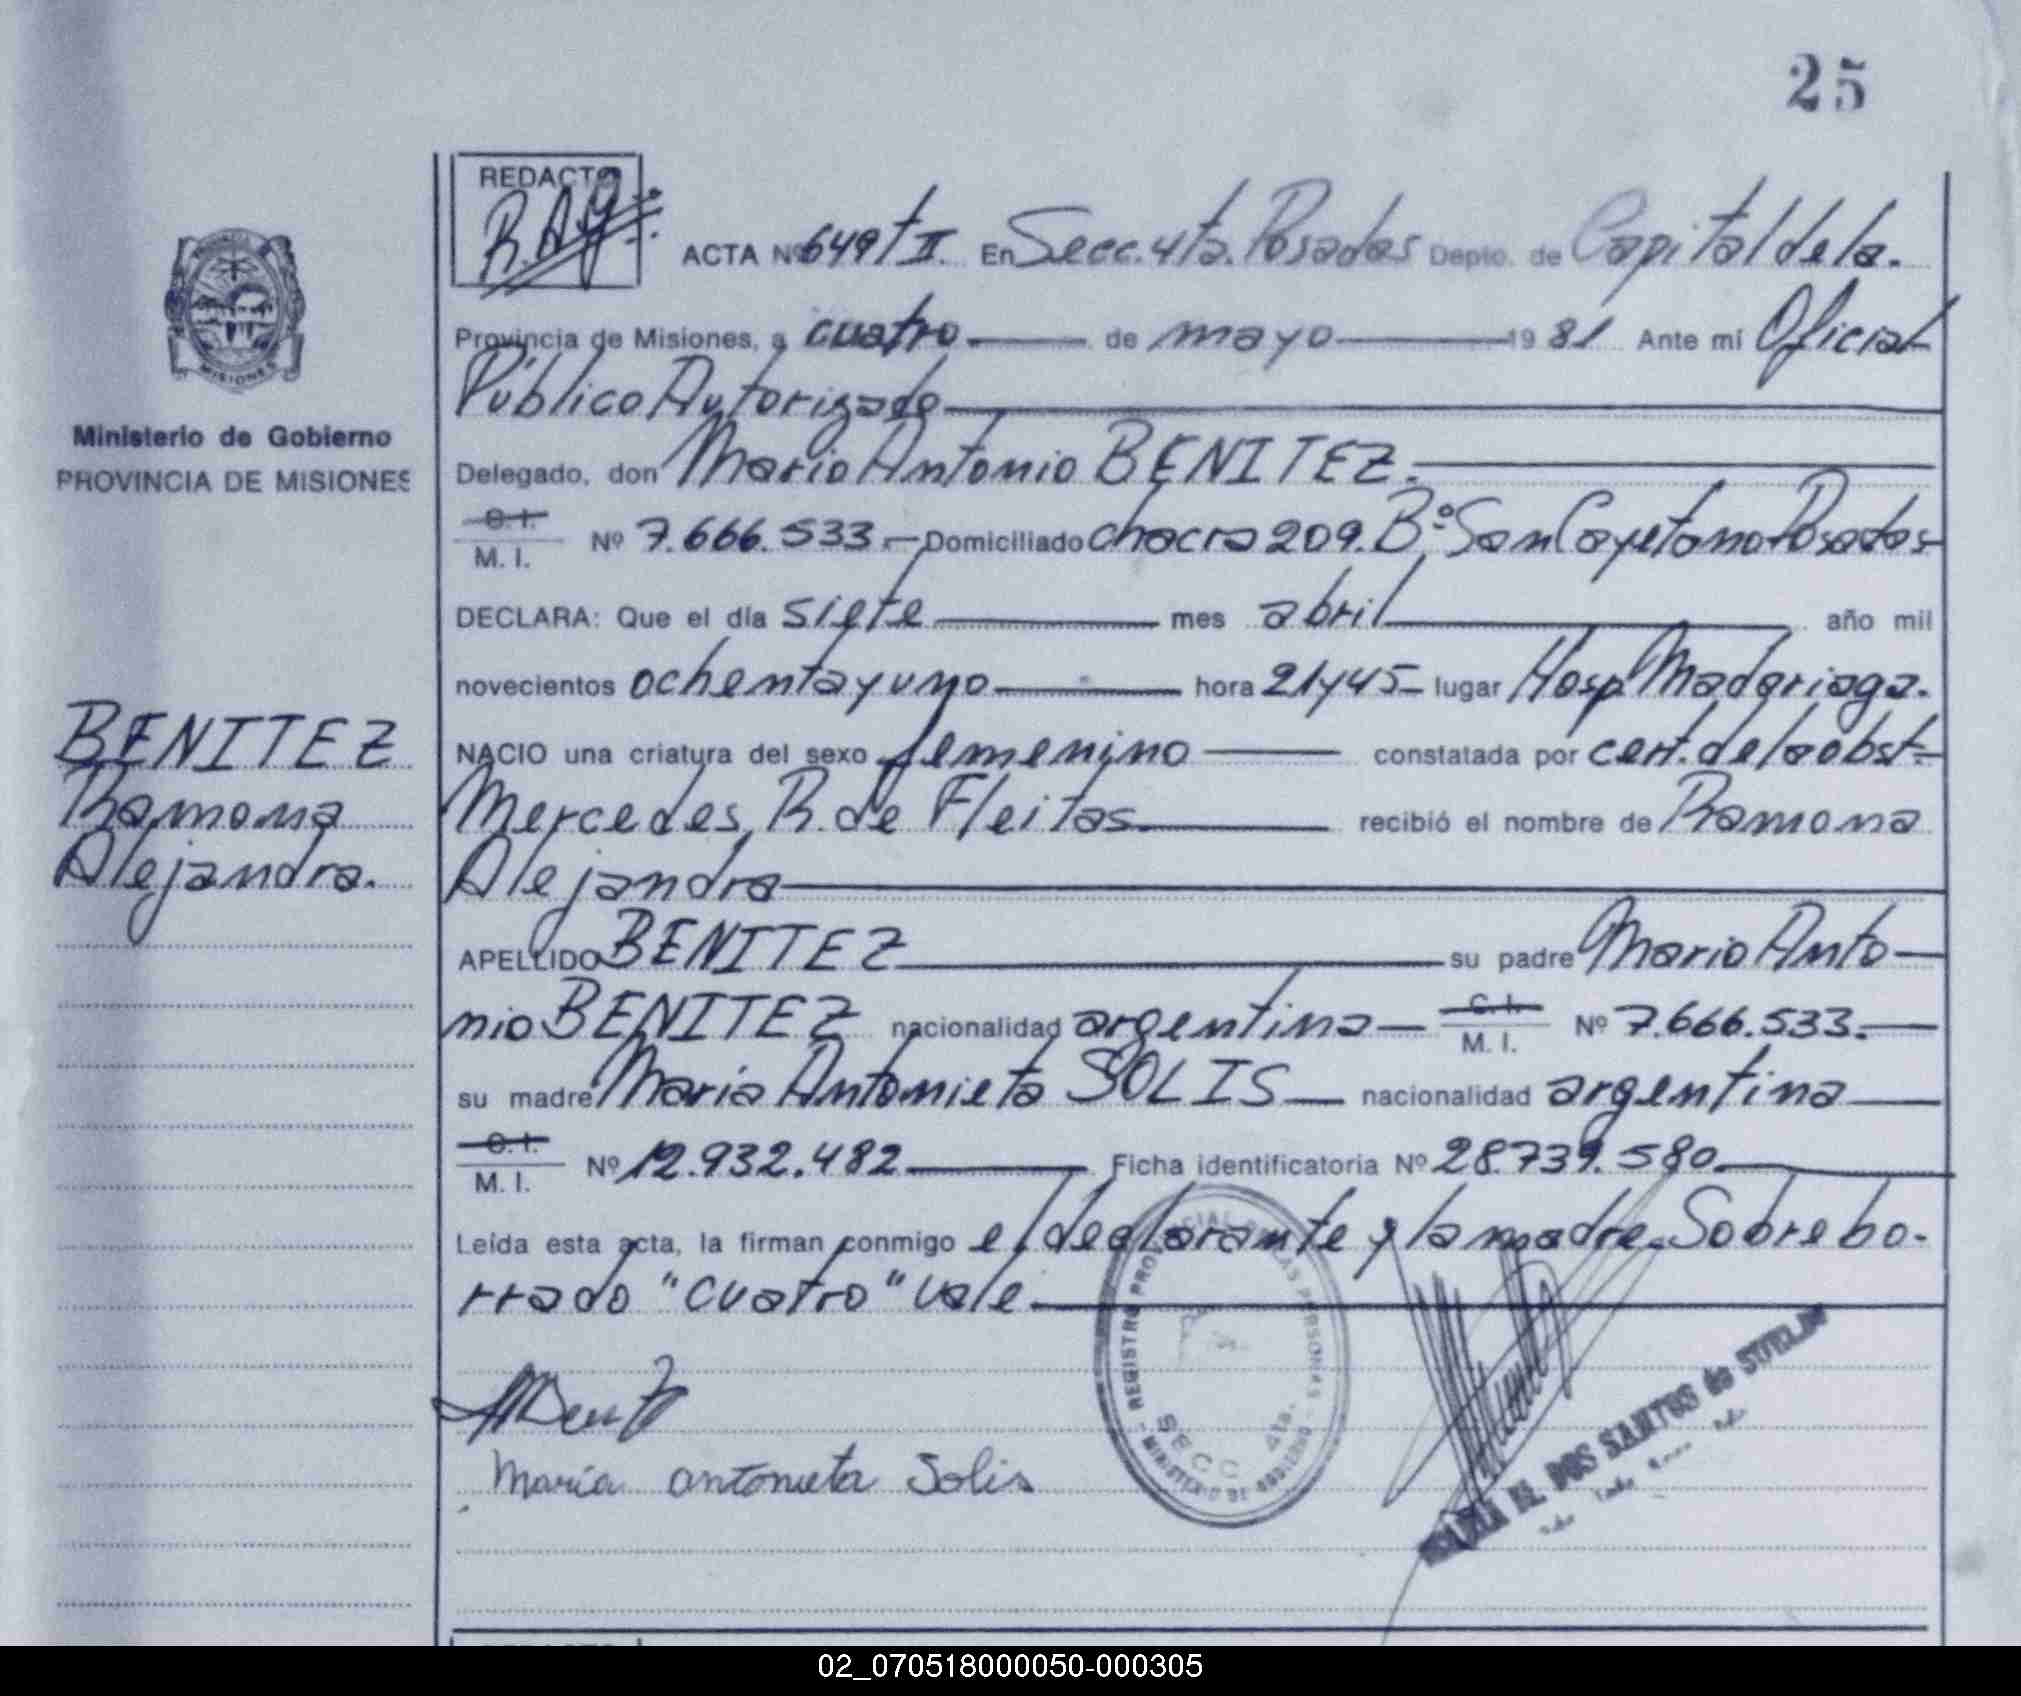 25
REDACTO
R.A.G.
ACTA Nº 649 T II. En Secc. 4ta. Posadas Depto. de Capital de la.
MISIONES
Provincia de Misiones, a cuatro. de mayo 19 81 Ante mí Oficial
Público Autorizado
Ministerio de Gobierno
PROVINCIA DE MISIONES
Delegado, don Mario Antonio BENITEZ.
C. I.
M. I. Nº 7.666.533.- Domiciliado chacra 209. Bº San Cayetano-Posadas
DECLARA: Que el día siete mes abril año mil
novecientos ochenta y uno hora 21 y 45 lugar Hosp. Madariaga.
BENITEZ
Ramona
Alejandra.
NACIO una criatura del sexo femenino constatada por cert. de la obst.
Mercedes R. de Fleitas recibió el nombre de Ramona
Alejandra
APELLIDO BENITEZ su padre Mario Anto
nio BENITEZ nacionalidad argentina C. I.
M. I. Nº 7.666.533.
su madre María Antonieta SOLIS nacionalidad argentina
C. I.
M. I. Nº 12.932.482 Ficha identificatoria Nº 28.739.580.
Leída esta acta, la firman conmigo el declarante y la madre. Sobre bo-
rrado "cuatro" vale
REGISTRO PROVINCIAL DE LAS PERSONAS
SECC. 4ta.
MINISTERIO DE GOBIERNO
María antonieta Solis
DOS SANTOS de
02_070518000050-000305